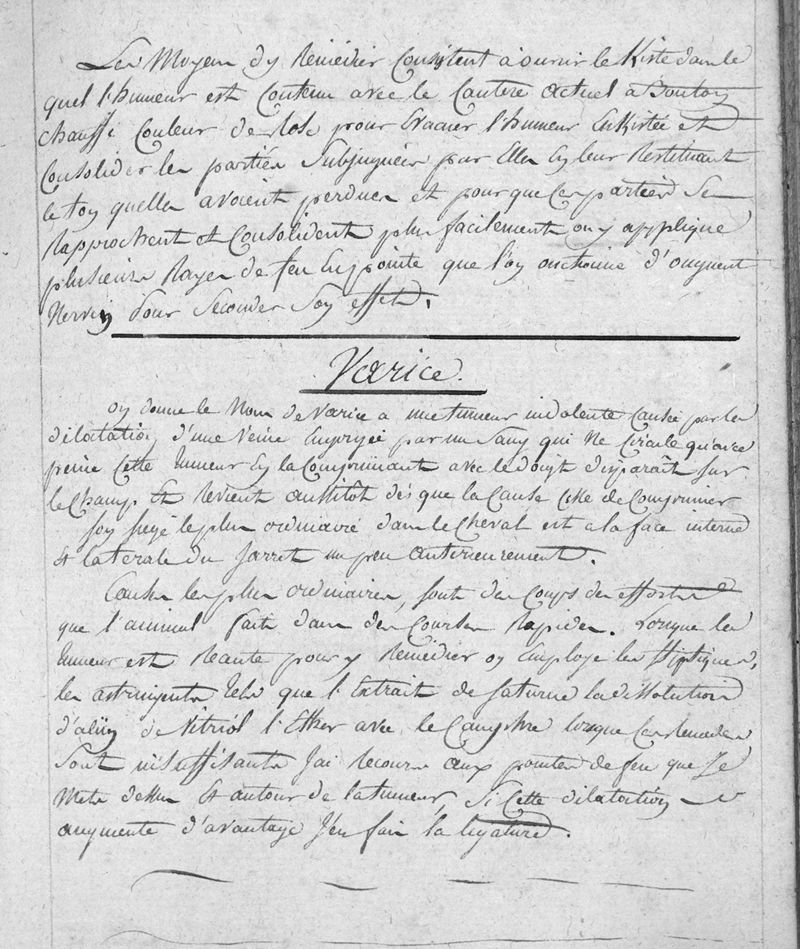 Les Moyens d'y Remédier Consistent a ouvrir le Kiste dans le
quel l'humeur est Contenu avec le Cautere actuel a Bouton
chauffé Couleur de Rose pour Evacuer l'humeur Enkistée et
Consolider les parties Subjuguées par Elles En leur Restituant
le ton quelles avoient perdues et pour que Ces parties Se
Rapprochent et Consolident plus facilement on y applique
plusieurs Rayes de feu En pointe que l'on onctionne d'onguent
Nervin Pour Seconder Son effet.
Varice.
on donne le Nom de Varice a une tumeur indolente Causée par la
dilatation d'une Veine Engorgée par un Sang qui Ne Circule qu'avec
peine Cette tumeur En la Comprimant avec le doigt disparait Sur
le Champ Et Revient aussitôt dés que la Cause Cesse de Comprimer
Son siege le plus ordinaire dans le Cheval est a la face interne
Et laterale du Jarret un peu anterieurement.
Causes les plus ordinaires, sont des Coups des efforts
que l'animal fait dans des Courses Rapides. Lorsque la
tumeur est Recente pour y Remédier on Employe les Stiptiques,
les astringents tels que l'Extrait de Saturne la dissolution
d'alün de Vitriol l'Ether avec le Camphre lorsque Ces Remedes
Sont insuffisants J'ai recours aux pointes de feu que Je
Mets dessus Et autour de la tumeur, Si Cette dilatation
augmente d'avantage J'en fais la ligature.